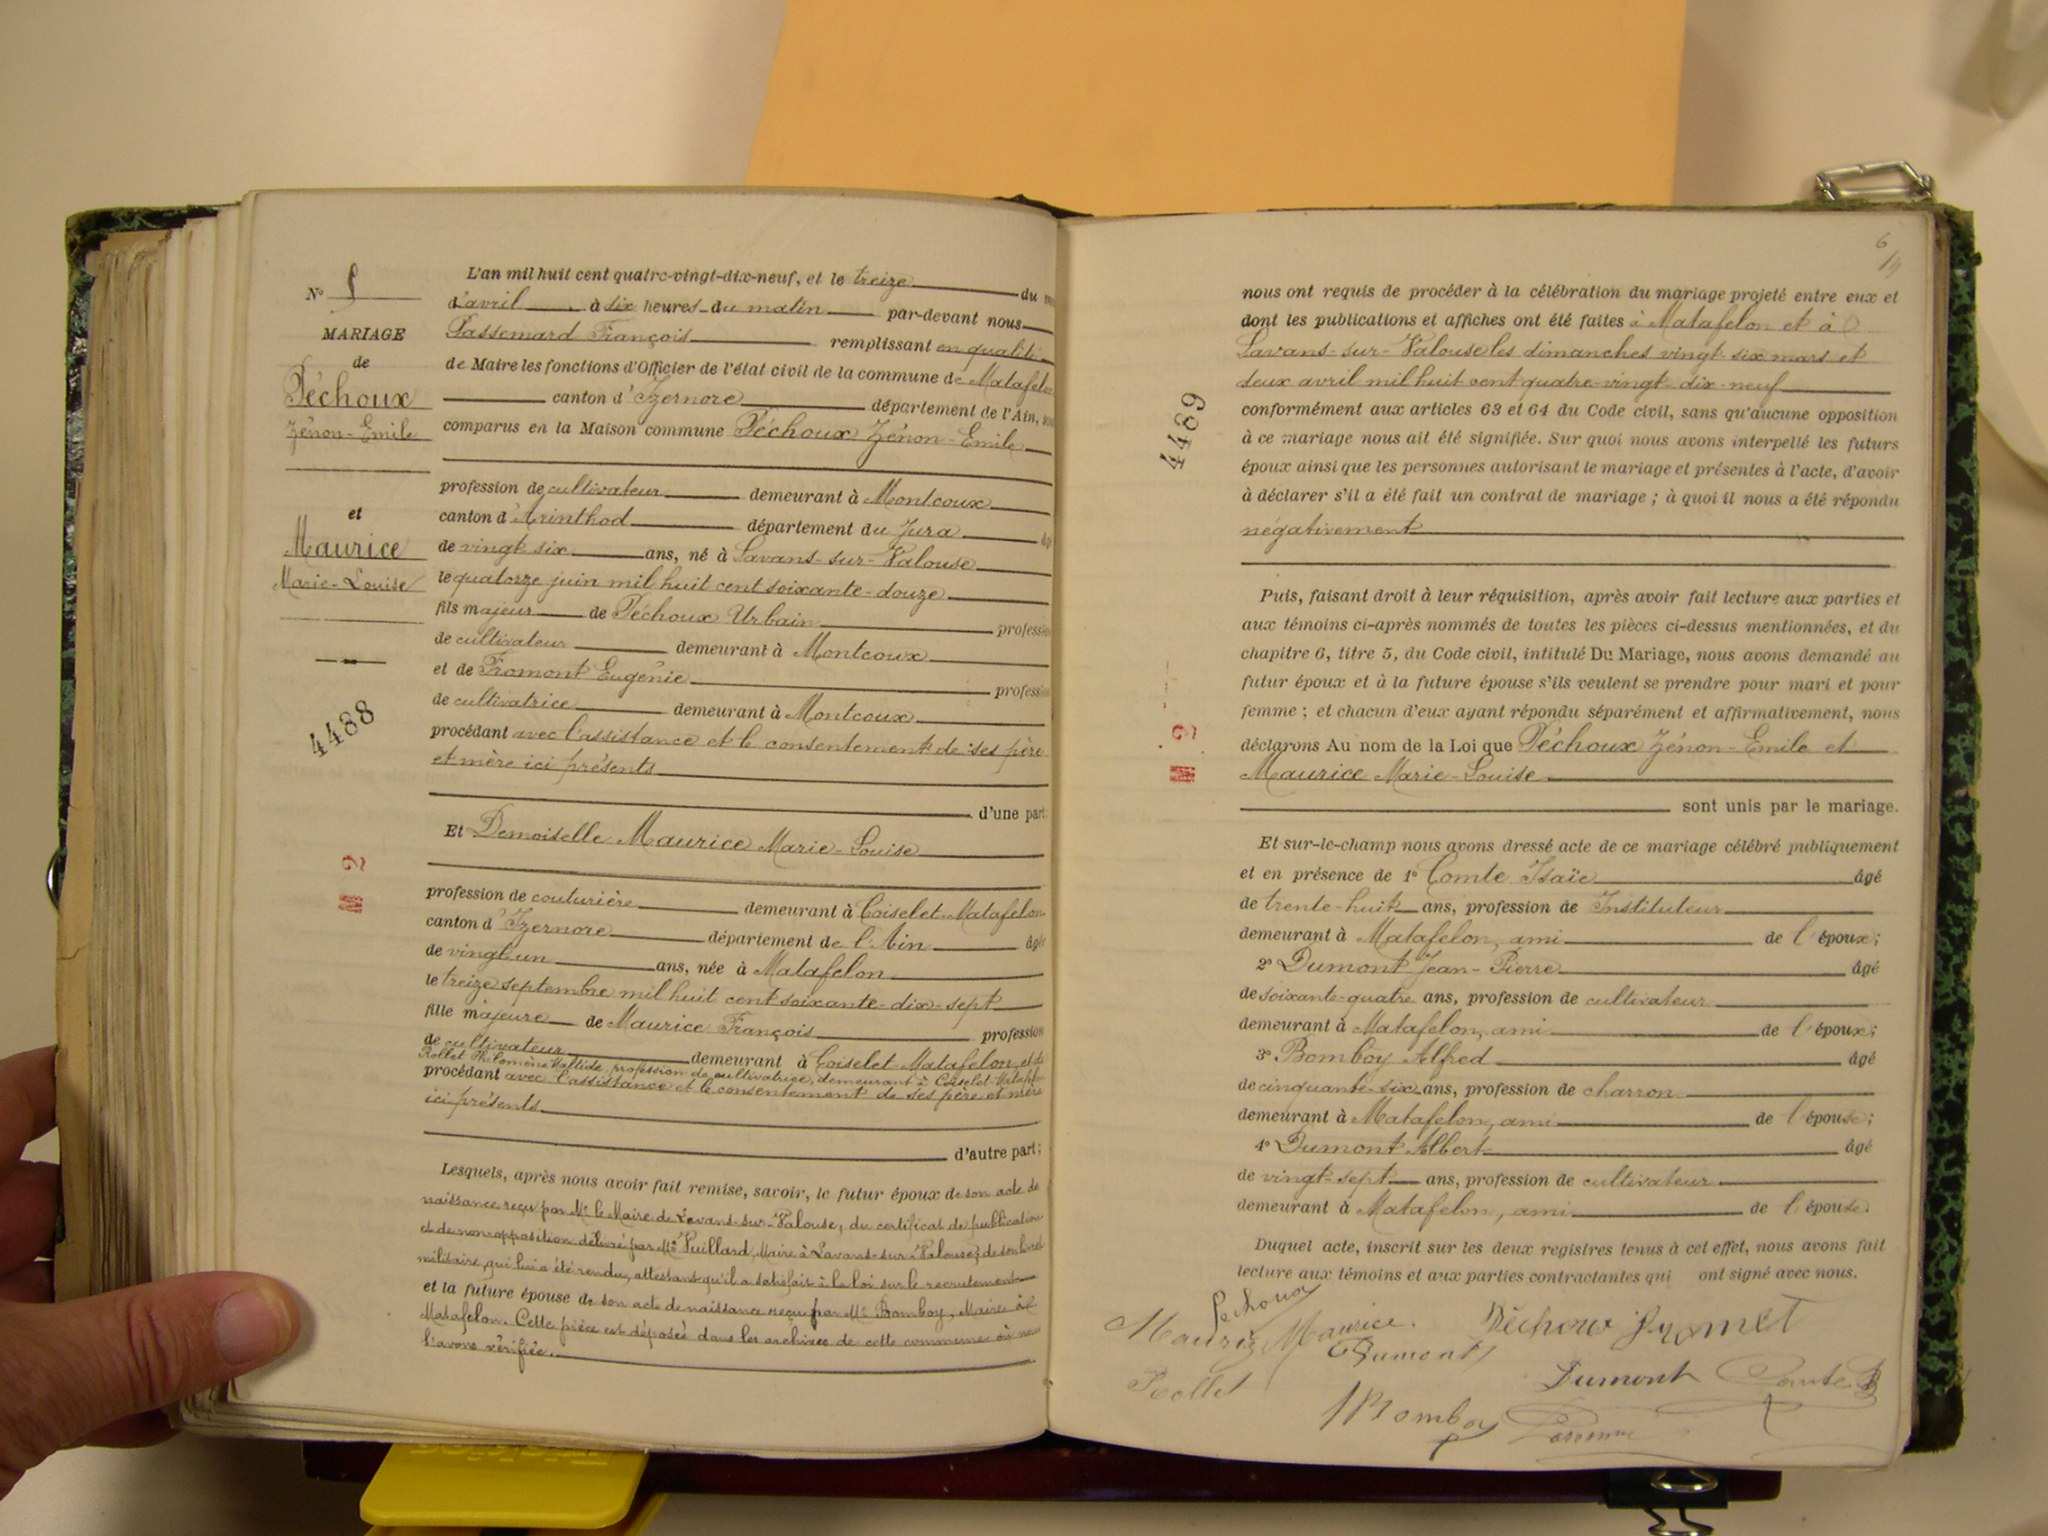 L'an mil huit cent quatre-vingt-dix-neuf, et le treize du
d'avril à six heures du matin par-devant nous
Passemard François remplissant en qualité
de Maire les fonctions d'Officier de l'état civil de la commune de Matafelon
canton d'Izernore département de l'Ain,
comparus en la Maison commune Péchoux Zénon-Emile
profession de cultivateur demeurant à Montcoux
canton d'Arinthod département du Jura
de vingt-six ans, né à Lavans-sur-Valouse
le quatorze juin mil huit cent soixante-douze
fils majeur de Péchoux Urbain profession
de cultivateur demeurant à Montcoux
et de Fromont Eugénie profession
de cultivatrice demeurant à Montcoux
procédant avec l'assistance et le consentement de ses père
et mère ici présents
d'une part
Et Demoiselle Maurice Marie-Louise
profession de couturière demeurant à Coiselet-Matafelon
canton d'Izernore département de l'Ain âgée
de vingt-un ans, née à Matafelon
le treize septembre mil huit cent soixante-dix-sept
fille majeure de Maurice François profession
de cultivateur demeurant à Coiselet-Matafelon et de
Rollet Philomène Maltide, profession de cultivatrice, demeurant à Coiselet-Mataf-
procédant avec l'assistance et le consentement de ses père et mère
ici présents
d'autre part;
Lesquels, après nous avoir fait remise, savoir, le futur époux de son acte de
naissance reçu par Mr le Maire de Lavans-sur-Valouse, du certificat de publication
et de non opposition délivré par Mr Vuillard, Maire à Lavans-sur-Valouse; de son livret
militaire, qui lui a été rendu, attestant qu'il a satisfait à la loi sur le recrutement
et la future épouse de son acte de naissance reçu par Mr Bomboy, Maire à
Matafelon. Cette pièce est déposée dans les archives de cette commune où nous
l'avons vérifiée.
N° 5
MARIAGE
de
Péchoux
Zénon-Emile
et
Maurice
Marie-Louise
4488
2
6
14
nous ont requis de procéder à la célébration du mariage projeté entre eux et
dont les publications et affiches ont été faites à Matafelon et à
Lavans-sur-Valouse les dimanches vingt-six mars et
deux avril mil huit cent quatre-vingt-dix-neuf
conformément aux articles 63 et 64 du Code civil, sans qu'aucune opposition
à ce mariage nous ait été signifiée. Sur quoi nous avons interpellé les futurs
époux ainsi que les personnes autorisant le mariage et présentes à l'acte, d'avoir
à déclarer s'il a été fait un contrat de mariage; à quoi il nous a été répondu
négativement
Puis, faisant droit à leur réquisition, après avoir fait lecture aux parties et
aux témoins ci-après nommés de toutes les pièces ci-dessus mentionnées, et du
chapitre 6, titre 5, du Code civil, intitulé Du Mariage, nous avons demandé au
futur époux et à la future épouse s'ils veulent se prendre pour mari et pour
femme; et chacun d'eux ayant répondu séparément et affirmativement, nous
déclarons Au nom de la Loi que Péchoux Zénon-Emile et
Maurice Marie-Louise
sont unis par le mariage.
Et sur-le-champ nous avons dressé acte de ce mariage célébré publiquement
et en présence de 1° Comte Isaïe âgé
de trente-huit ans, profession de Instituteur
demeurant à Matafelon, ami de l'époux;
2° Dumont Jean-Pierre âgé
de soixante-quatre ans, profession de cultivateur
demeurant à Matafelon, ami de l'époux;
3° Bomboy Alfred âgé
de cinquante-six ans, profession de charron
demeurant à Matafelon, ami de l'épouse;
4° Dumont Albert âgé
de vingt-sept ans, profession de cultivateur
demeurant à Matafelon, ami de l'épouse.
Duquel acte, inscrit sur les deux registres tenus à cet effet, nous avons fait
lecture aux témoins et aux parties contractantes qui ont signé avec nous.
Pechoux
Maurice Maurice. Péchoux Fromont
Dumont
Rollet Dumont Comte
Bomboy
4489
2